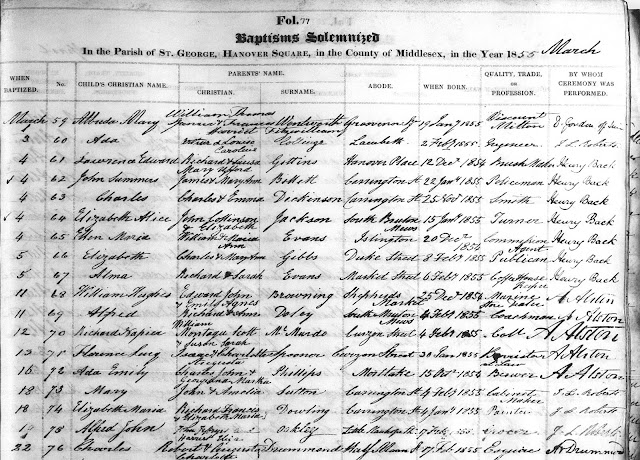 Fol. 77
Baptisms Solemnized
In the Parish of ST. GEORGE, HANOVER SQUARE, in the County of Middlesex, in the Year 1855 March
WHEN BAPTIZED. No. CHILD'S CHRISTIAN NAME. PARENTS' NAME. CHRISTIAN. SURNAME. ABODE. WHEN BORN. QUALITY, TRADE, OR PROFESSION. BY WHOM CEREMONY WAS PERFORMED.
March 59 Albreda Mary William Thomas Spencer & Frances Harriet Wentworth Fitzwilliam Grosvenor Sq 19 Jany 1855 Viscount Milton
3 60 Ada Louisa Caroline Lambeth 2 Feb 1855 Engineer J L Roberts
4 61 Lawrence Edward Richard & Louisa Mary Gittins 12 Decr 1854 Henry Back
4 62 John Summers James & Mary Ann Bellett Carrington St 22 Jany 1855 Policeman Henry Back
4 63 Charles Charles & Emma Dickinson Carrington St 25 Nov 1855 Smith Henry Back
4 64 Elizabeth Alice John & Elizabeth Jackson South Bruton Mews 15 Jany 1855 Turner Henry Back
4 65 Ellen Maria William & Maria Ann Evans Islington 20 Decr 1854 Commission Agent Henry Back
5 66 Elizabeth Charles & Mary Ann Gibbs Duke Street 8 Feby 1855 Publican Henry Back
5 67 Alma Richard & Sarah Evans Market Street 6 Feby 1855 Coffee House Keeper Henry Back
11 68 William Hughes Edward John & Emily Agnes Browning Shepherds Market 25 Decr 1854
11 69 Alfred Richard & Ann South Mews 4 Feby 1855 Coachman A Alston
12 70 Richard Napier William Montagu Scott & Susan Sarah McMurdo Curzon Street 4 Feby 1855 Coll A Alston
13 71 Florence Lucy Isaac & Charlotte Spooner Curzon Street 30 Jan 1855 Barrister at Law A Alston
16 72 Ada Emily Charles John & Georgiana Maria Phillips Mortlake 15 Oct 1854 Brewer A Alston
18 73 Mary John & Amelia Sutton Carrington St 4 Feby 1855 Cabinet Maker J L Roberts
18 74 Elizabeth Maria Richard Francis & Elizabeth Maria Dowling Carrington St 4 Jany 1855 Painter J L Roberts
19 75 Alfred John Oakley 1855 Grocer J L Roberts
22 76 Charles Robert & Augusta Charlotte Drummond Half Moon St 17 Feb 1855 Esquire